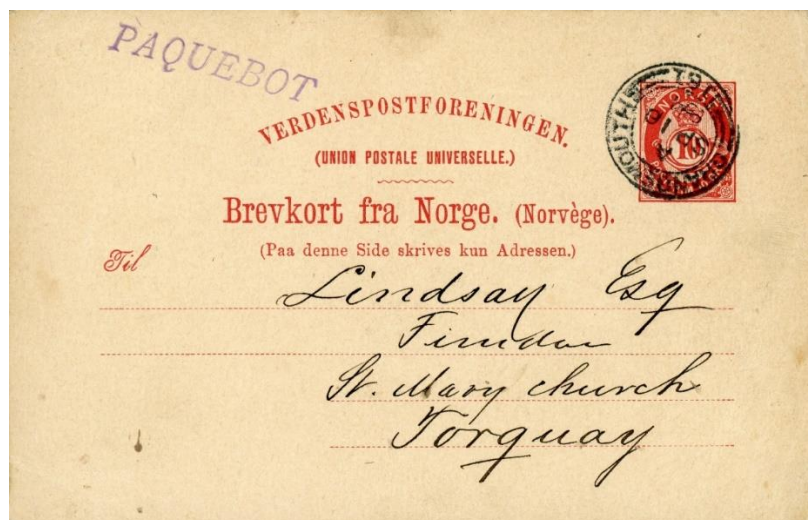 PAQUEBOT
VERDENSPOSTFORENINGEN.
(UNION POSTALE UNIVERSELLE.)
Brevkort fra Norge. (Norvège).
(Paa denne Side skrives kun Adressen.)
Til
NORGE
10
Lindsay Esq
St. Mary church
Torquay